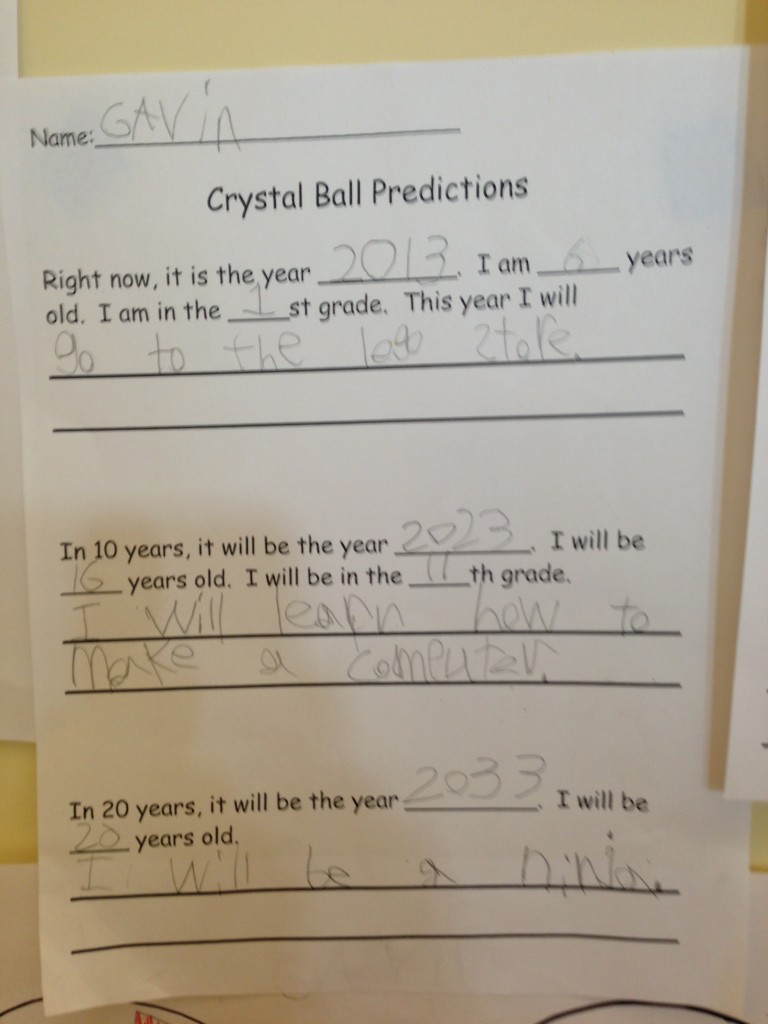 Name: GAViN
Crystal Ball Predictions
Right now, it is the year 2013. I am 6 years
old. I am in the 1st grade. This year I will
go to the lego store.
In 10 years, it will be the year 2023. I will be
16 years old. I will be in the 11th grade.
I will learn how to
make a computer.
In 20 years, it will be the year 2033. I will be
20 years old.
I will be a ninja.